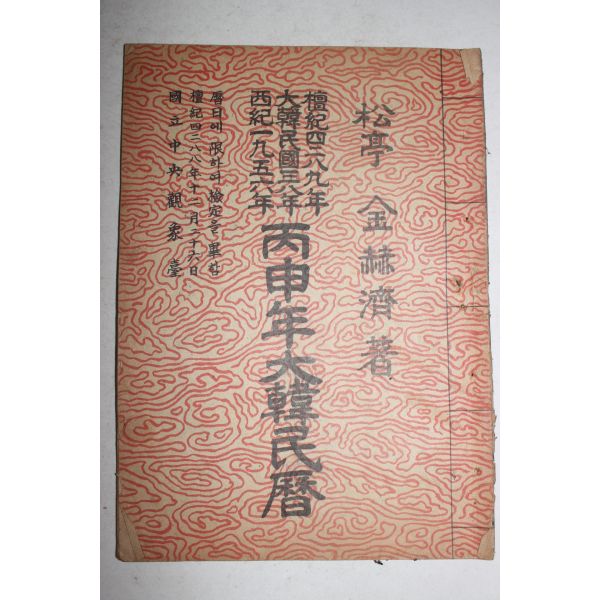 松亭 金赫濟 著
檀紀四二八九年
大韓民國三八年
西紀一九五六年
丙申年大韓民曆
曆日에 限하여 檢定을 畢함
檀紀四二八八年十二月二十六日
國立中央觀象臺